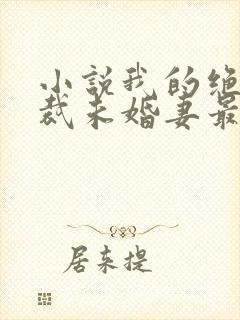 小说我的绝
裁未婚妻最
居来提